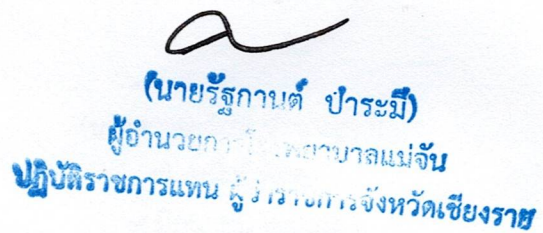 (นายรัฐกานต์ ปาระมี)
ผู้อำนวยการโรงพยาบาลแม่จัน
ปฏิบัติราชการแทน ผู้ว่าราชการจังหวัดเชียงราย